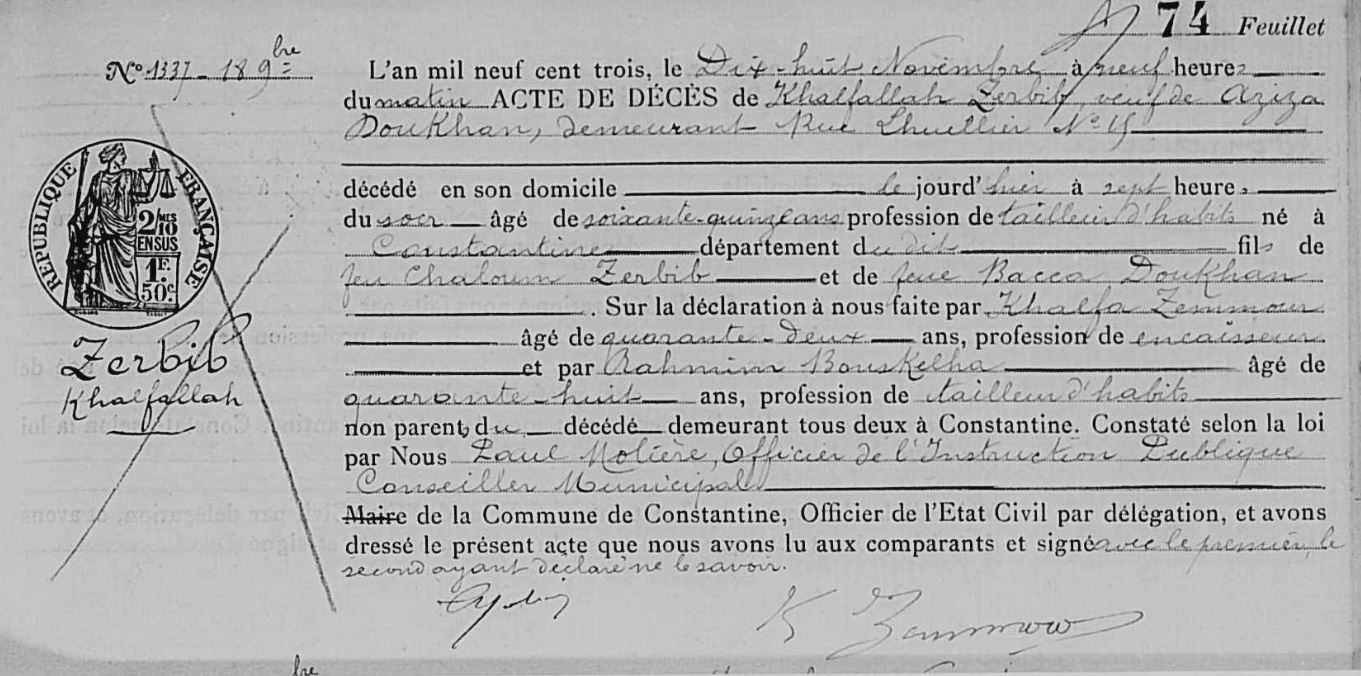 74 Feuillet
Nº 1337 - 18 9bre
L'an mil neuf cent trois, le Dix-huit Novembre, à neuf heures
du matin ACTE DE DÉCÈS de Khalfallah Zerbib, veuf de Aziza
Doukhan, demeurant Rue Lhuillier Nº 15
décédé en son domicile le jourd'hier à sept heures
du soir âgé de soixante-quinze ans profession de tailleur d'habits né à
Constantine département du dit fils de
feu Chaloum Zerbib et de feue Bacca Doukhan
. Sur la déclaration à nous faite par Khalfa Zemmour
âgé de quarante-deux ans, profession de encaisseur
et par Rahmim Bouskelha âgé de
quarante-huit ans, profession de tailleur d'habits
non parents du décédé demeurant tous deux à Constantine. Constaté selon la loi
par Nous Paul Molière, Officier de l'Instruction Publique
Conseiller Municipal
Maire de la Commune de Constantine, Officier de l'Etat Civil par délégation, et avons
dressé le présent acte que nous avons lu aux comparants et signé avec le premier, le
second ayant déclaré ne le savoir.
K Zemmour
RÉPUBLIQUE FRANÇAISE
2/10MES
EN SUS
1F.
50c.
Zerbib
Khalfallah
bre